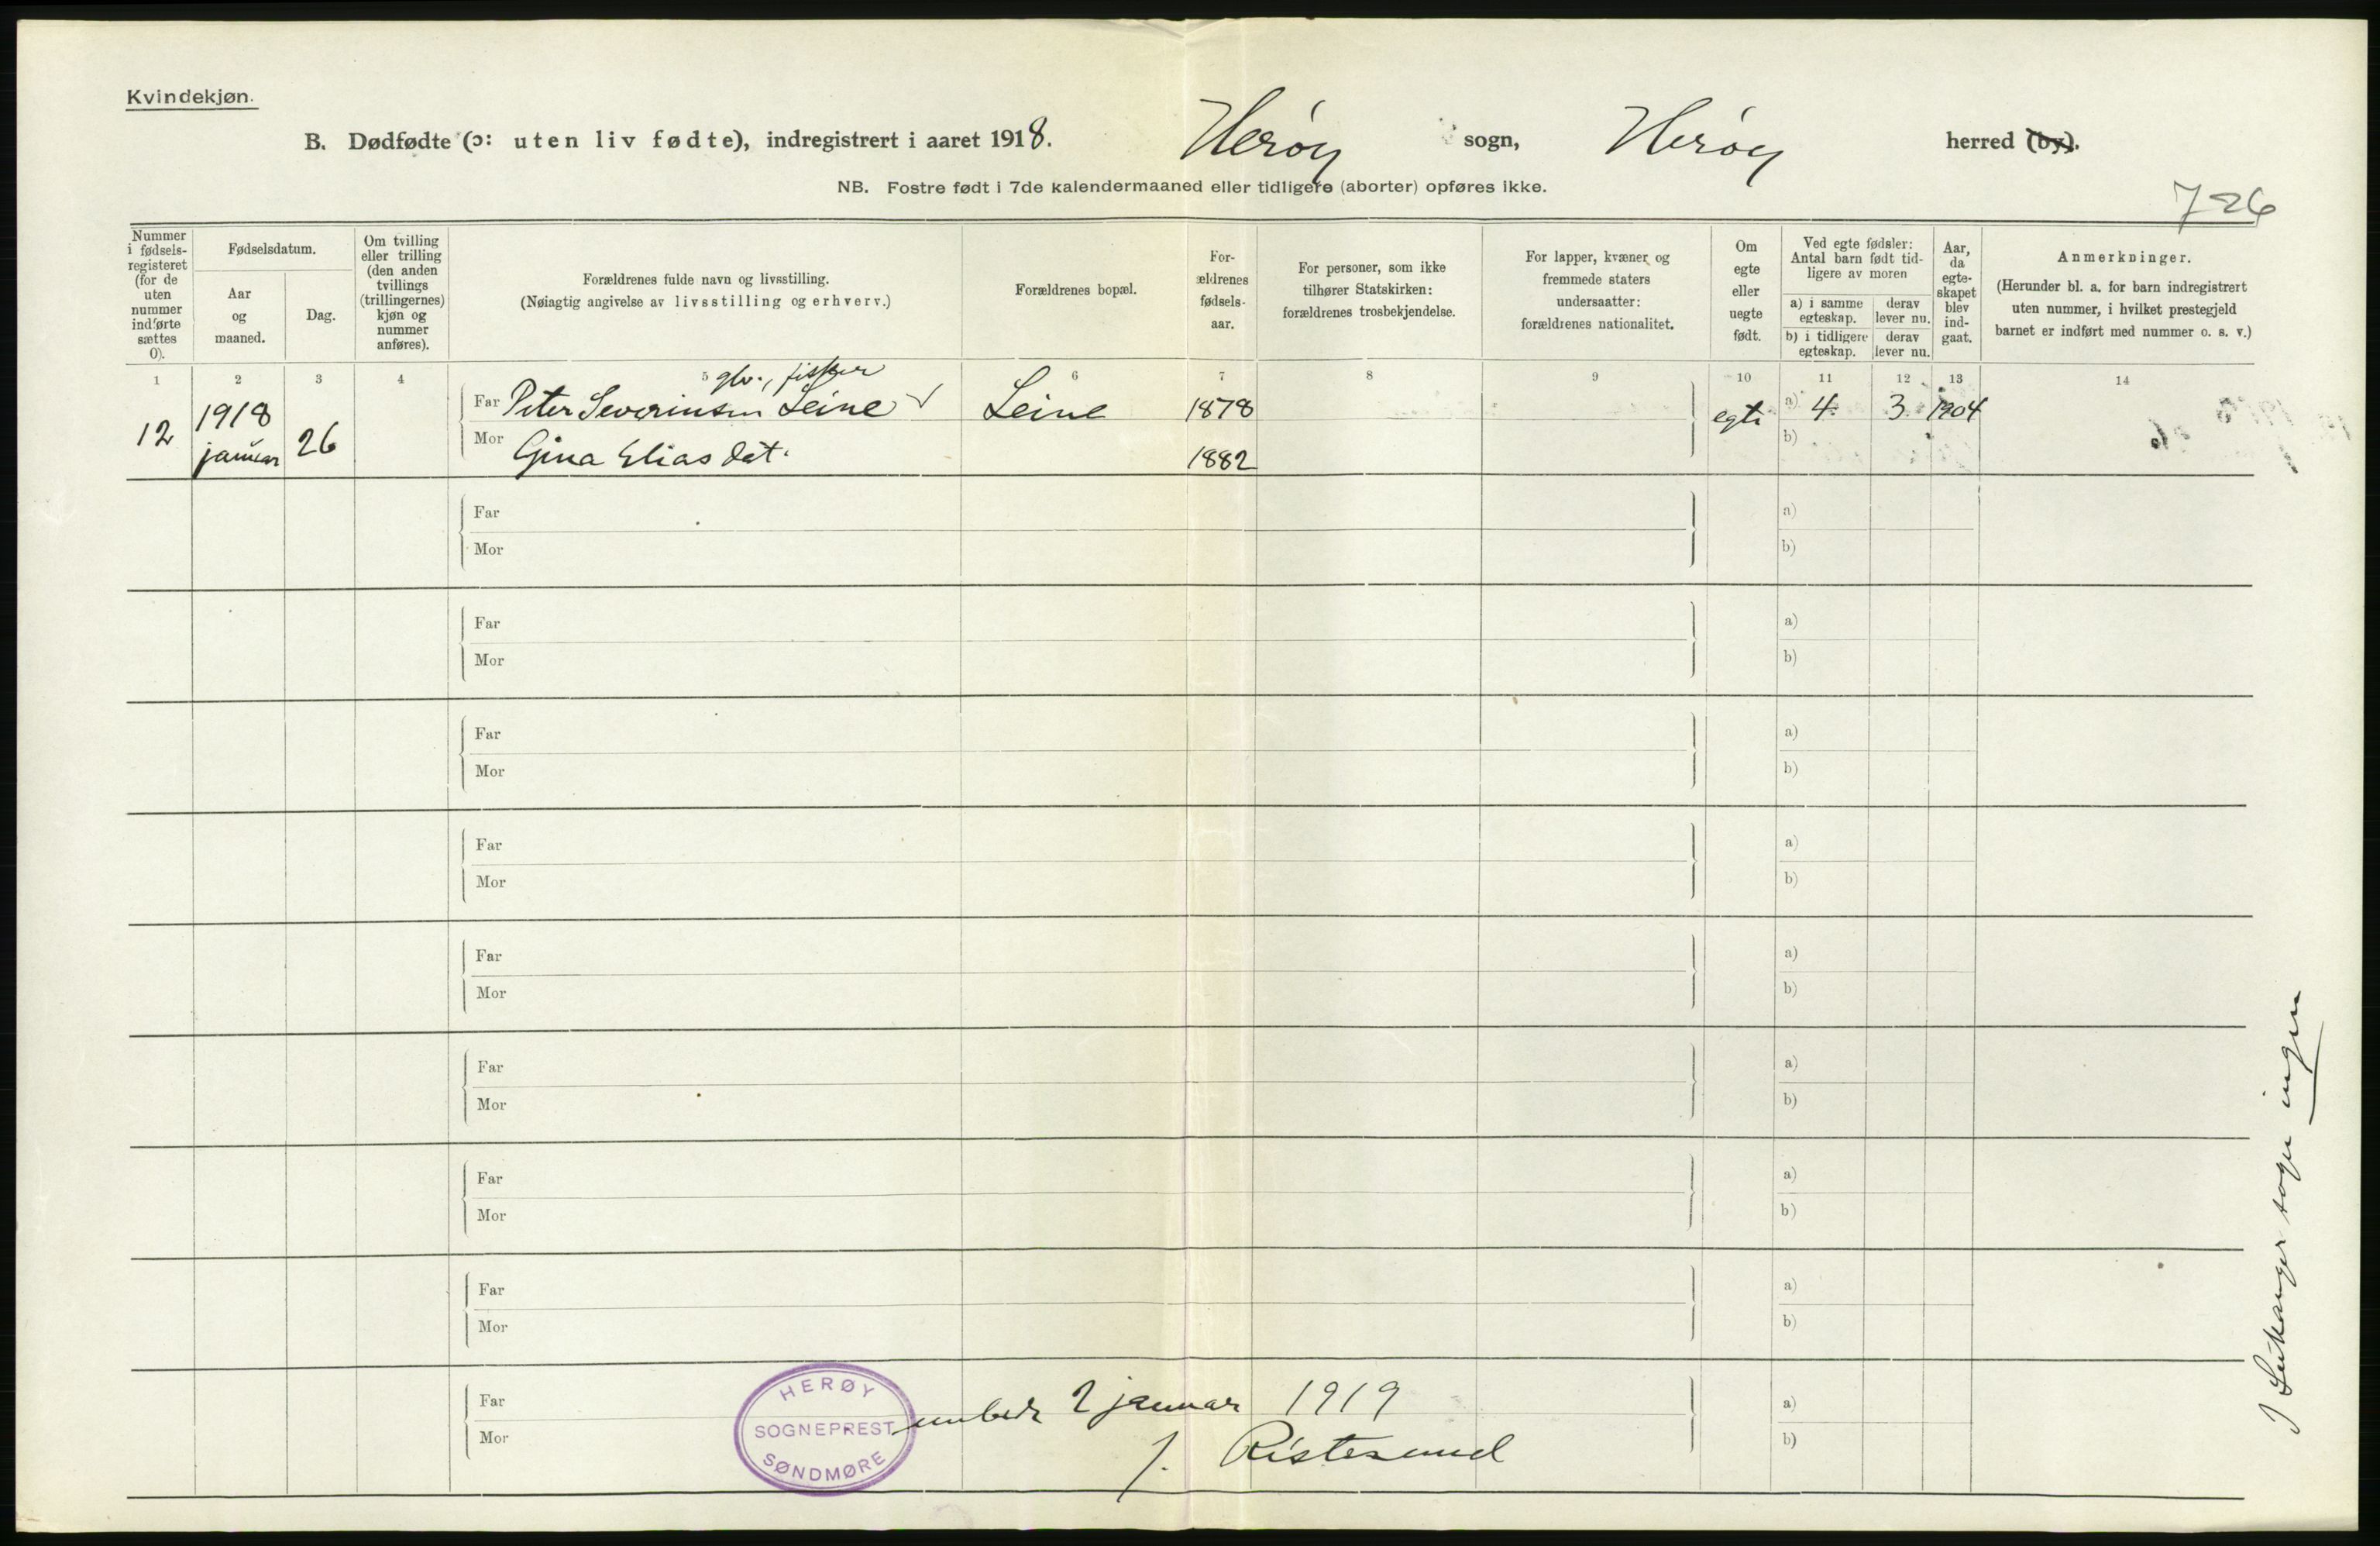 Kvindekjøn.
B. Dødfødte (ɔ: uten liv fødte), indregistrert i aaret 1918. Herøy sogn, Herøy herred (by).
NB. Fostre født i 7de kalendermaaned eller tidligere (aborter) opføres ikke.
726
Nummer
i fødsels-
registeret
(for de
uten
nummer
indførte
sættes
0).
Fødselsdatum.
Aar
og
maaned.
Dag.
Om tvilling
eller trilling
(den anden
tvillings
(trillingernes)
kjøn og
nummer
anføres).
Forældrenes fulde navn og livsstilling.
(Nøiagtig angivelse av livsstilling og erhverv.)
Forældrenes bopæl.
For-
ældrenes
fødsels-
aar.
For personer, som ikke
tilhører Statskirken:
forældrenes trosbekjendelse.
For lapper, kvæner og
fremmede staters
undersaatter:
forældrenes nationalitet.
Om
egte
eller
uegte
født.
Ved egte fødsler:
Antal barn født tid-
ligere av moren
a) i samme
egteskap.
derav
lever nu.
b) i tidligere
egteskap.
derav
lever nu.
Aar,
da
egte-
skapet
blev
ind-
gaat.
Anmerkninger.
(Herunder bl. a. for barn indregistrert
uten nummer, i hvilket prestegjeld
barnet er indført med nummer o. s. v.)
1 2 3 4 5 6 7 8 9 10 11 12 13 14
gbr., fisker
12 1918 januar 26 Far Peter Severinsen Leine Leine 1878 egte a) 4 3 1904
Mor Gina Elias dat. 1882 b)
Far a)
Mor b)
Far a)
Mor b)
Far a)
Mor b)
Far a)
Mor b)
Far a)
Mor b)
Far a)
Mor b)
Far a)
Mor b)
Far a)
Mor b)
Far 2 januar 1919 a)
Mor J. Ristesund b)
HERØY
SOGNEPREST
SØNDMØRE
I Leikanger sogn ingen